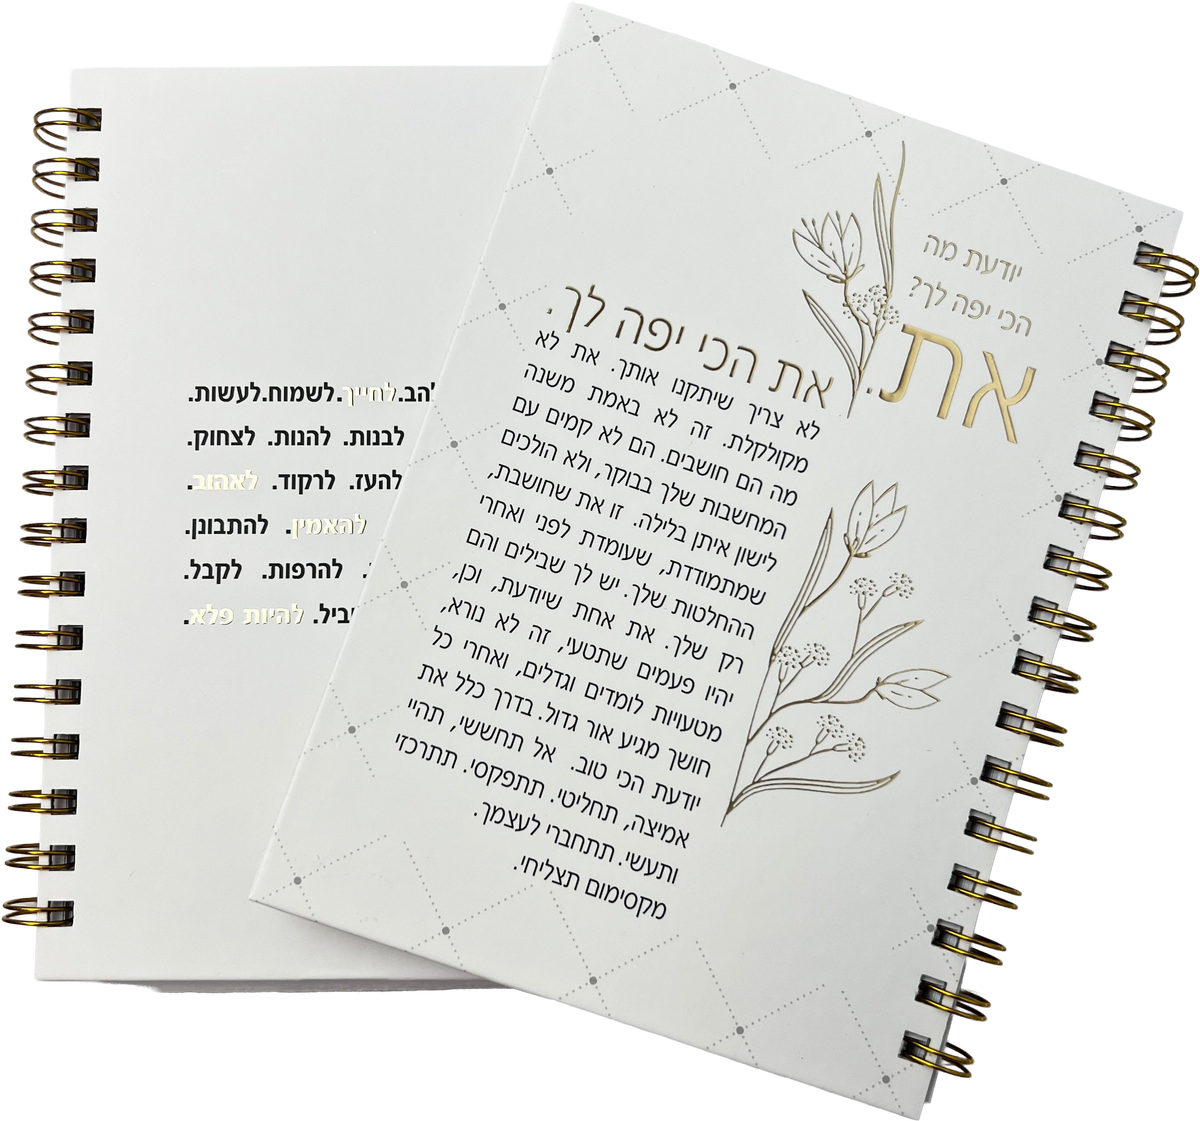 יודעת מה
הכי יפה לך?
את..
את הכי יפה לך.
לא צריך שיתקנו אותך. את לא
מקולקלת. זה לא באמת משנה
מה הם חושבים. הם לא קמים עם
המחשבות שלך בבוקר, ולא הולכים
לישון איתן בלילה. זו את שחושבת,
שמתמודדת, שעומדת לפני ואחרי
ההחלטות שלך. יש לך שבילים והם
רק שלך. את אחת שיודעת, וכן,
יהיו פעמים שתטעי, זה לא נורא,
מטעויות לומדים וגדלים, ואחרי כל
חושך מגיע אור גדול. בדרך כלל את
יודעת הכי טוב. אל תחששי, תהיי
אמיצה, תחליטי. תתפקסי. תתרכזי
ותעשי. תתחברי לעצמך.
מקסימום תצליחי.
לחייך.לשמוח.לעשות.
לבנות. להנות. לצחוק.
להעז. לרקוד. לאהוב.
להאמין. להתבונן.
להרפות. לקבל.
להיות פלא.